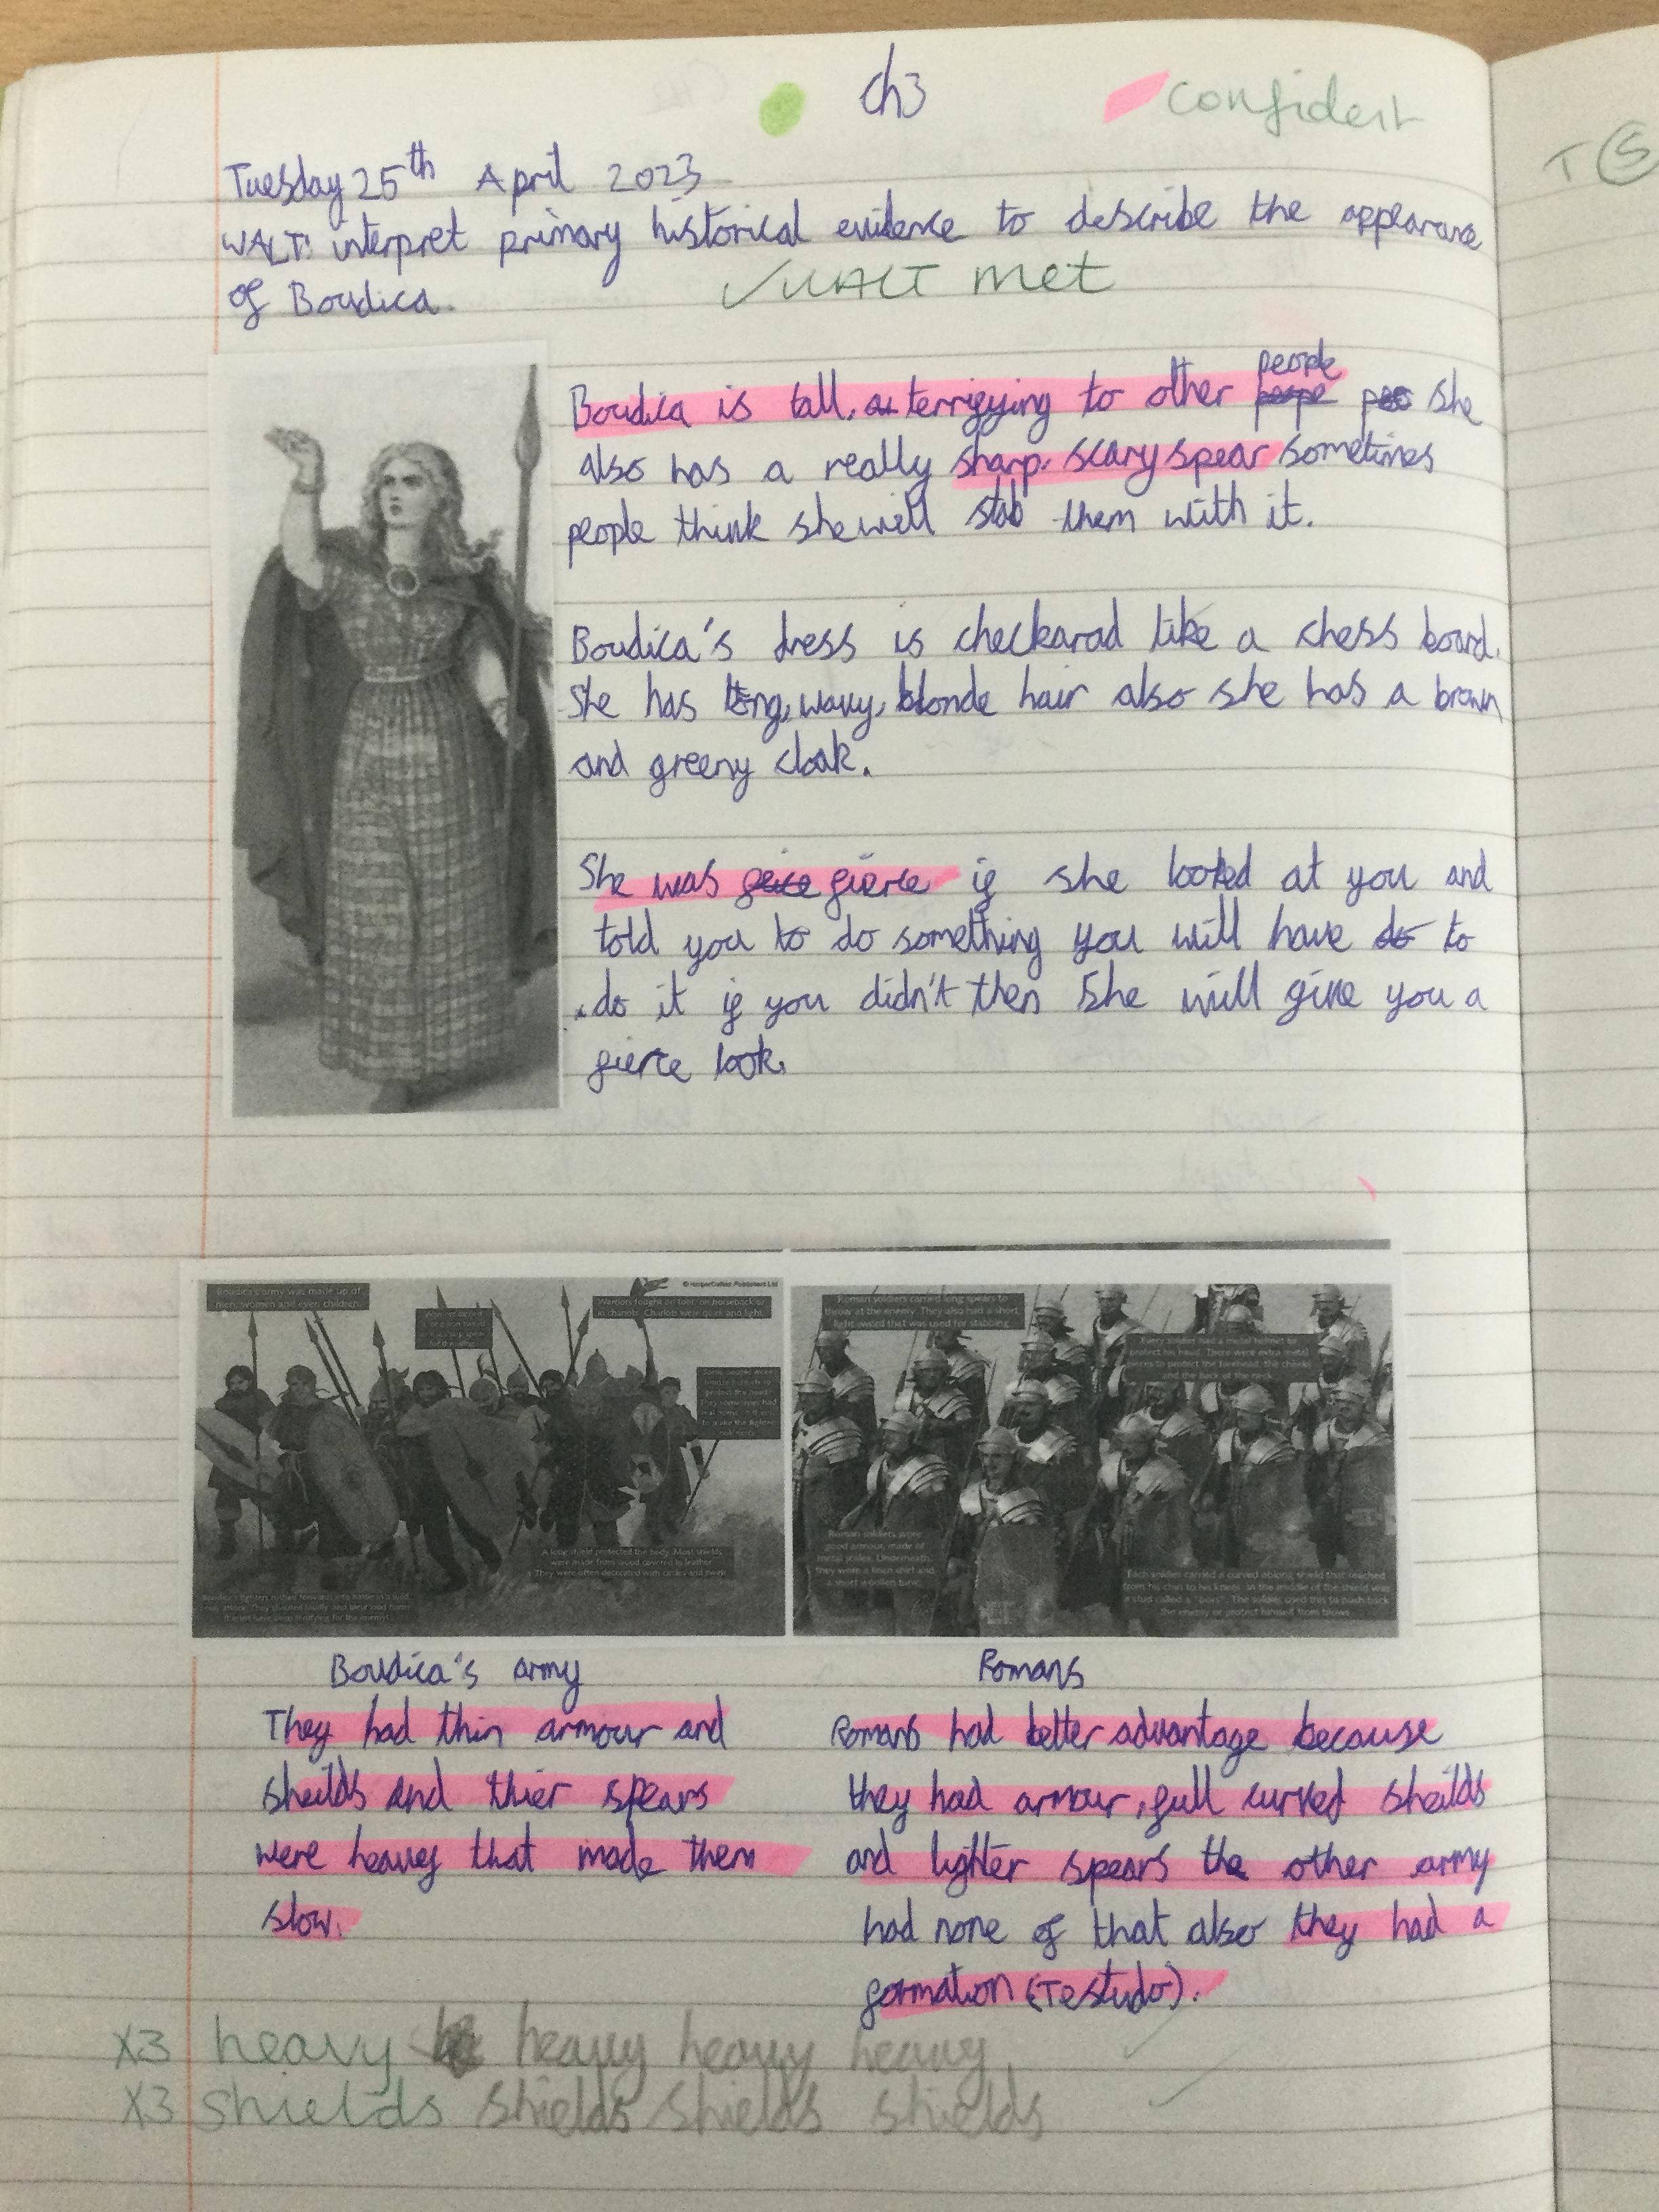 ch3
confident
T S
Tuesday 25th April 2023
WALT: interpret primary historical evidence to describe the appearance
of Boudica.
✓ WALT met
Boudica is tall, terrifying to other people she
also has a really sharp, scary spear sometimes
people think she will stab them with it.
Boudica's dress is checkarad like a chess board.
She has long, wavy, blonde hair also she has a brown
and greeny cloak.
She was fierce if she looked at you and
told you to do something you will have to
do it if you didn't then she will give you a
fierce look.
Boudica's army was made up of
men, women and even children.
© HarperCollins Publishers Ltd
Warriors fought on foot, on horseback or
in chariots. Chariots were quick and light.
A long shield protected the body. Most shields
were made from wood covered in leather.
They were often decorated with circles and
Roman soldiers carried long spears to
throw at the enemy. They also had a short,
light sword that was used for stabbing.
Every soldier had a metal helmet to
protect his head. There were extra metal
pieces to protect the forehead, the cheeks
and the back of the neck.
Roman soldiers wore
good armour, made of
metal scales. Underneath,
they wore a linen shirt and
a short woollen tunic.
Each soldier carried a curved oblong shield that reached
from his chin to his knees. In the middle of the shield was
a stud called a "boss". The soldier used this to push back
the enemy or protect himself from blows.
Boudica's army
They had thin armour and
sheilds and thier spears
were heavey that made them
slow.
Romans
Romans had better advantage because
they had armour, full curved sheilds
and lighter spears the other army
had none of that also they had a
formation (Testudo).
x3 heavy heavy heavy heavy.
x3 shields shields shields shields